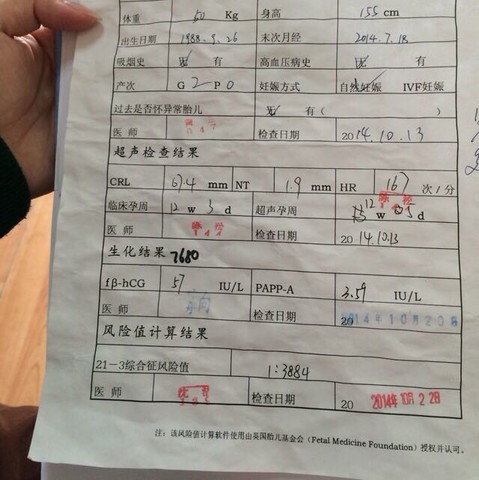 体重 50 Kg 身高 155 cm
出生日期 1988.9.26 末次月经 2014.7.18
吸烟史 无 有 高血压病史 无 有
产次 G 2 P 0 妊娠方式 自然妊娠 IVF妊娠
过去是否怀异常胎儿 无 有（ ）
医师 检查日期 2014.10.13
超声检查结果
CRL 67.4 mm NT 1.9 mm HR 167 次/分
临床孕周 12 w 3 d 超声孕周 12 w d
医师 检查日期 2014.10.13
生化结果 7680
fβ-hCG 57 IU/L PAPP-A 3.59 IU/L
医师 检查日期 20 2014年10月20日
风险值计算结果
21-3综合征风险值 1:3884
医师 检查日期 20 2014年10月22日
注：该风险值计算软件使用由英国胎儿基金会（Fetal Medicine Foundation）授权并认可。